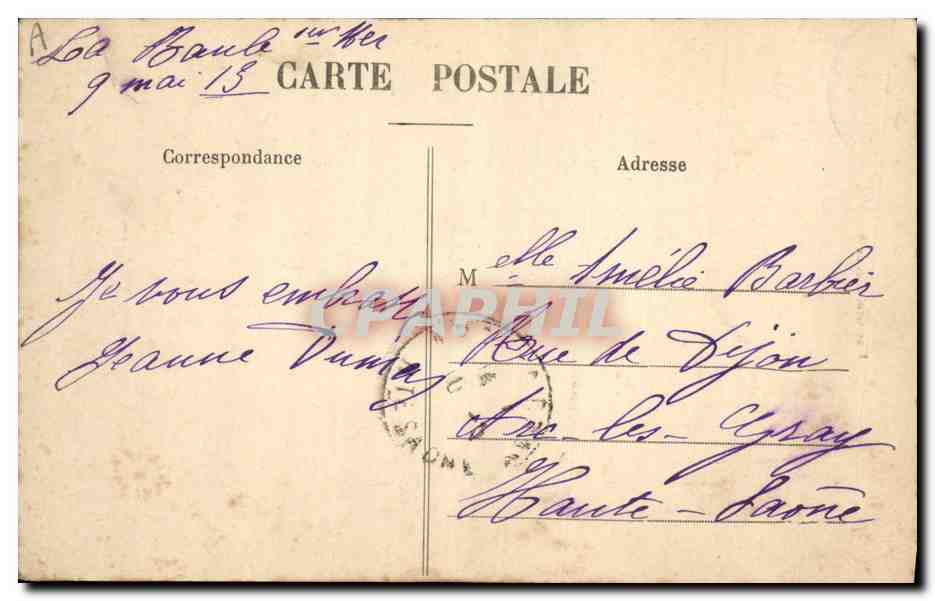 A
La Baule sur Mer
9 mai 13
CARTE POSTALE
Correspondance
Adresse
Je vous embrasse
Jeanne Dumas
Melle Amélie Barbier
Rue de Dijon
Arc-les-Gray
Haute-Saône
CPAPHIL
HTE SAONE